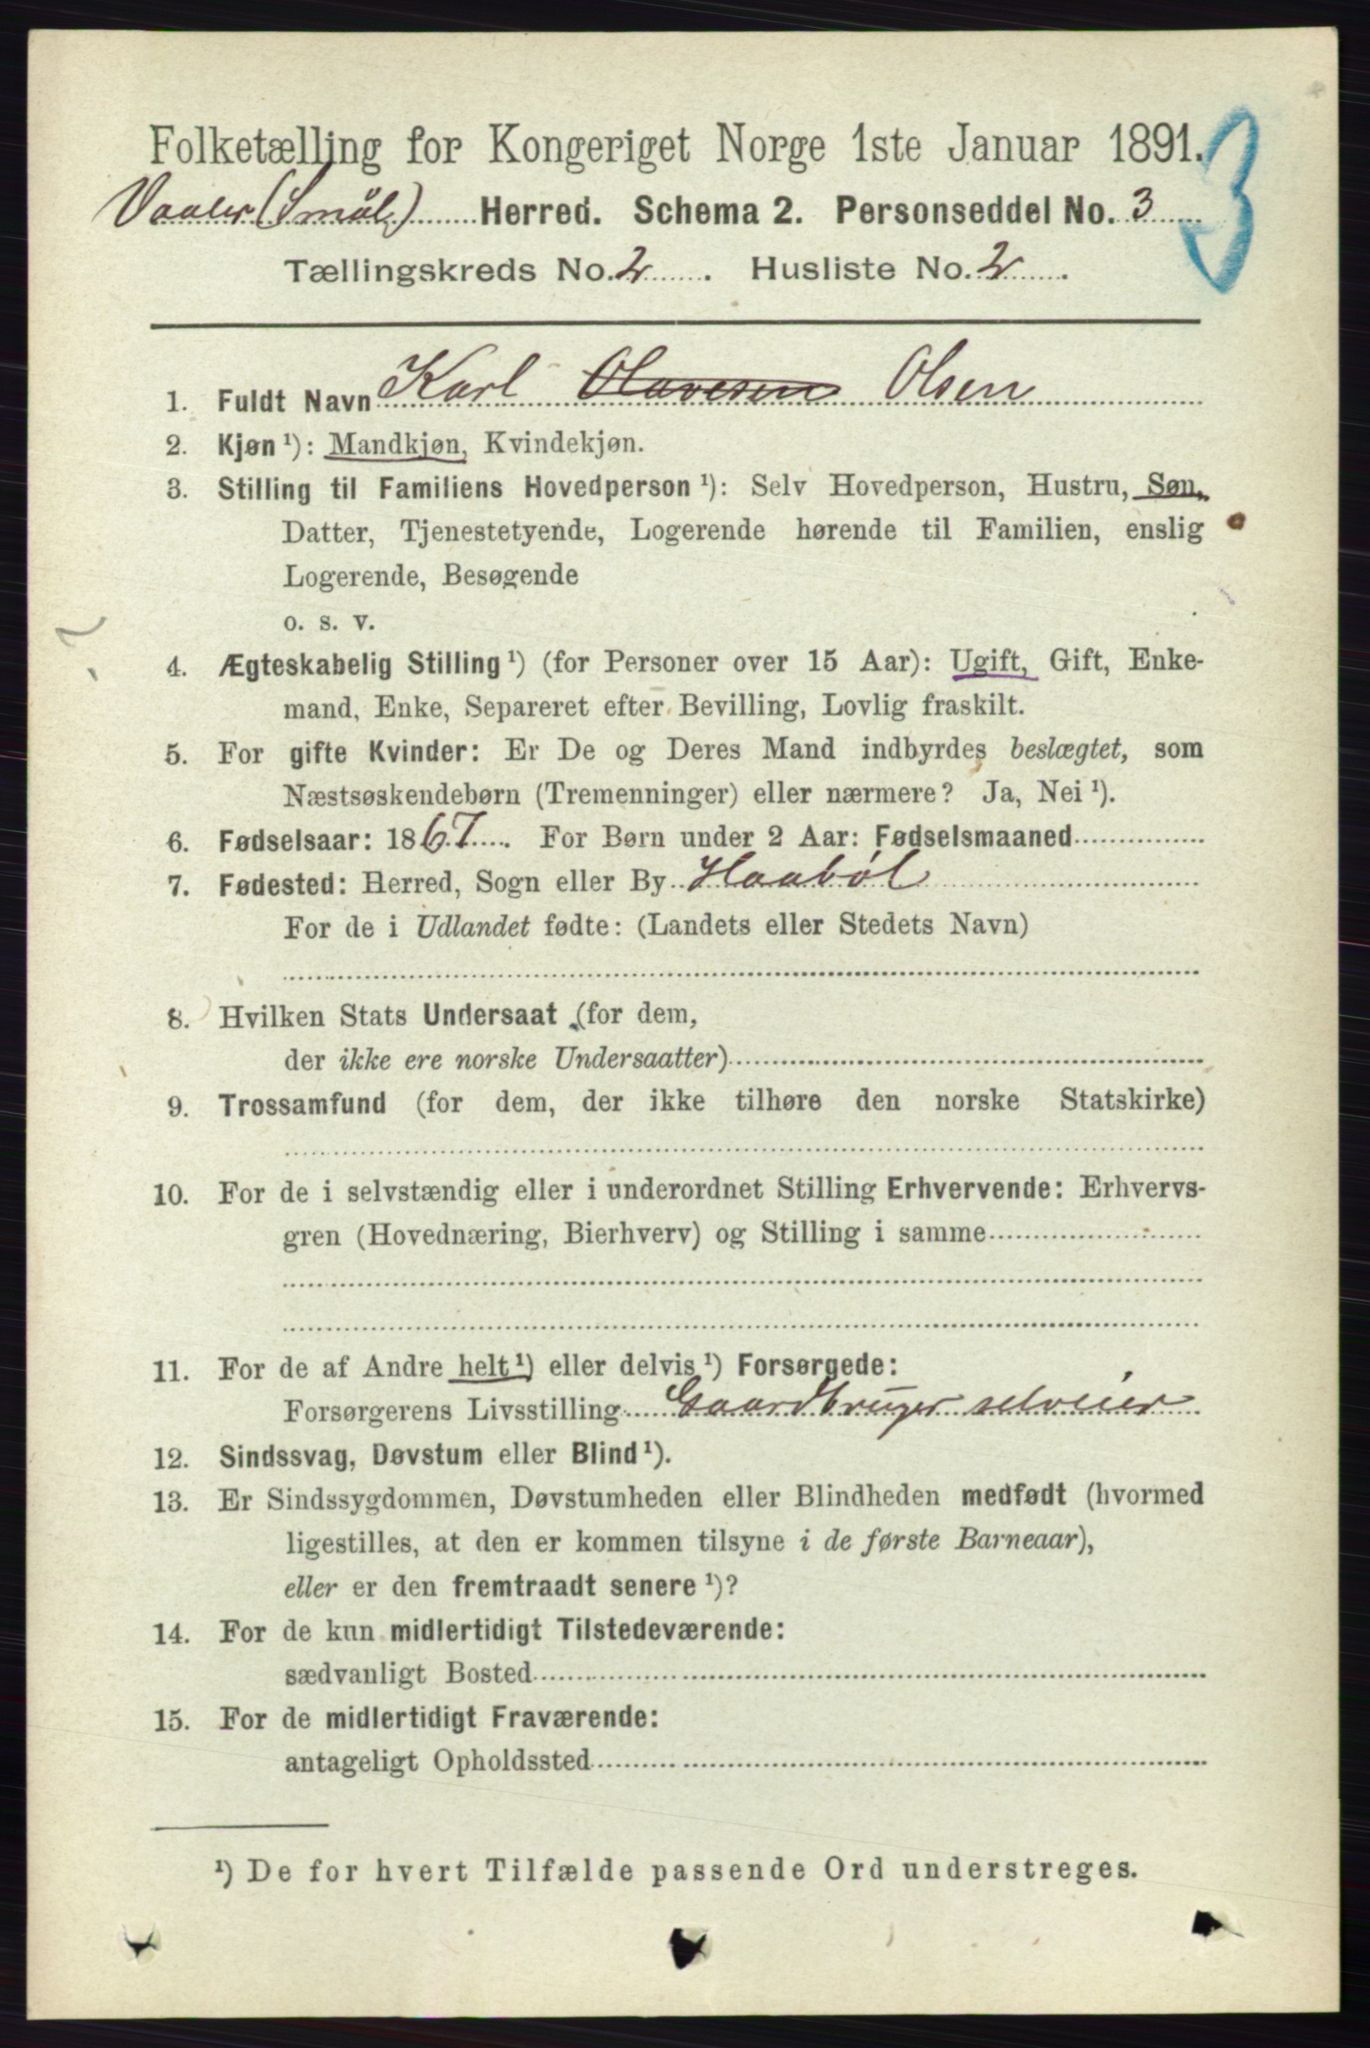 Folketælling for Kongeriget Norge 1ste Januar 1891.
3
Vaaler (Smål.) Herred. Schema 2. Personseddel No. 3
Tællingskreds No. 2. Husliste No. 2.
1. Fuldt Navn Karl Olavesen Olsen
2. Kjøn ¹): Mandkjøn, Kvindekjøn.
3. Stilling til Familiens Hovedperson ¹): Selv Hovedperson, Hustru, Søn,
Datter, Tjenestetyende, Logerende hørende til Familien, enslig
Logerende, Besøgende
o. s. v.
4. Ægteskabelig Stilling ¹) (for Personer over 15 Aar): Ugift, Gift, Enke-
mand, Enke, Separeret efter Bevilling, Lovlig fraskilt.
5. For gifte Kvinder: Er De og Deres Mand indbyrdes beslægtet, som
Næstsøskendebørn (Tremenninger) eller nærmere? Ja, Nei ¹).
6. Fødselsaar: 1867. For Børn under 2 Aar: Fødselsmaaned
7. Fødested: Herred, Sogn eller By Haabøl
For de i Udlandet fødte: (Landets eller Stedets Navn)
8. Hvilken Stats Undersaat (for dem,
der ikke ere norske Undersaatter)
9. Trossamfund (for dem, der ikke tilhøre den norske Statskirke)
10. For de i selvstændig eller i underordnet Stilling Erhvervende: Erhvervs-
gren (Hovednæring, Bierhverv) og Stilling i samme
11. For de af Andre helt ¹) eller delvis ¹) Forsørgede:
Forsørgerens Livsstilling Gaardbruger selveier
12. Sindssvag, Døvstum eller Blind ¹).
13. Er Sindssygdommen, Døvstumheden eller Blindheden medfødt (hvormed
ligestilles, at den er kommen tilsyne i de første Barneaar),
eller er den fremtraadt senere ¹)?
14. For de kun midlertidigt Tilstedeværende:
sædvanligt Bosted
15. For de midlertidigt Fraværende:
antageligt Opholdssted
¹) De for hvert Tilfælde passende Ord understreges.